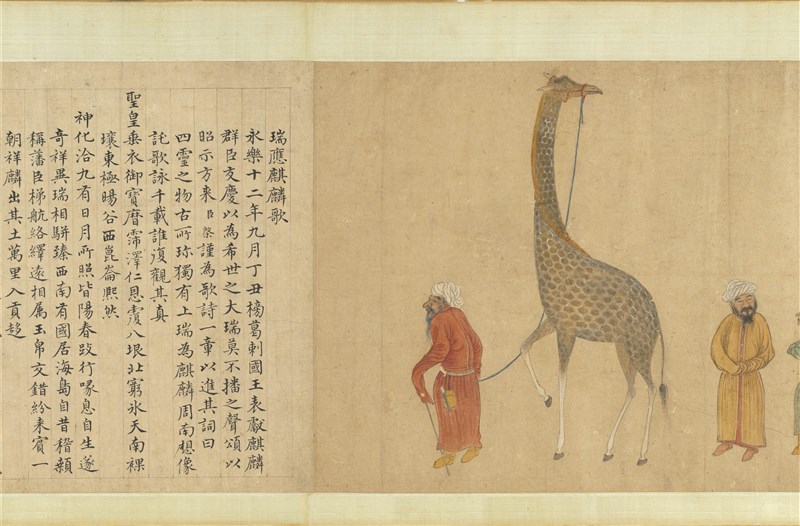 瑞應麒麟歌
永樂十二年九月丁丑榜葛剌國王表獻麒麟
群臣交慶以為希世之大瑞莫不播之聲頌以
昭示方來臣棨謹為歌詩一章以進其詞曰
四靈之物古所珍獨有上瑞為麒麟周南想像
託歌詠千載誰復觀其真
聖皇垂衣御寶曆霈澤仁恩覃八垠北窮氷天南裸
壤東極暘谷西崑崙熙然
神化洽九有日月所照皆陽春跂行喙息自生遂
奇祥異瑞相駢臻西南有國居海島自昔稽顙
稱藩臣梯航絡繹遠相属玉帛交錯紛來賓一
朝祥麟出其土萬里入貢趍